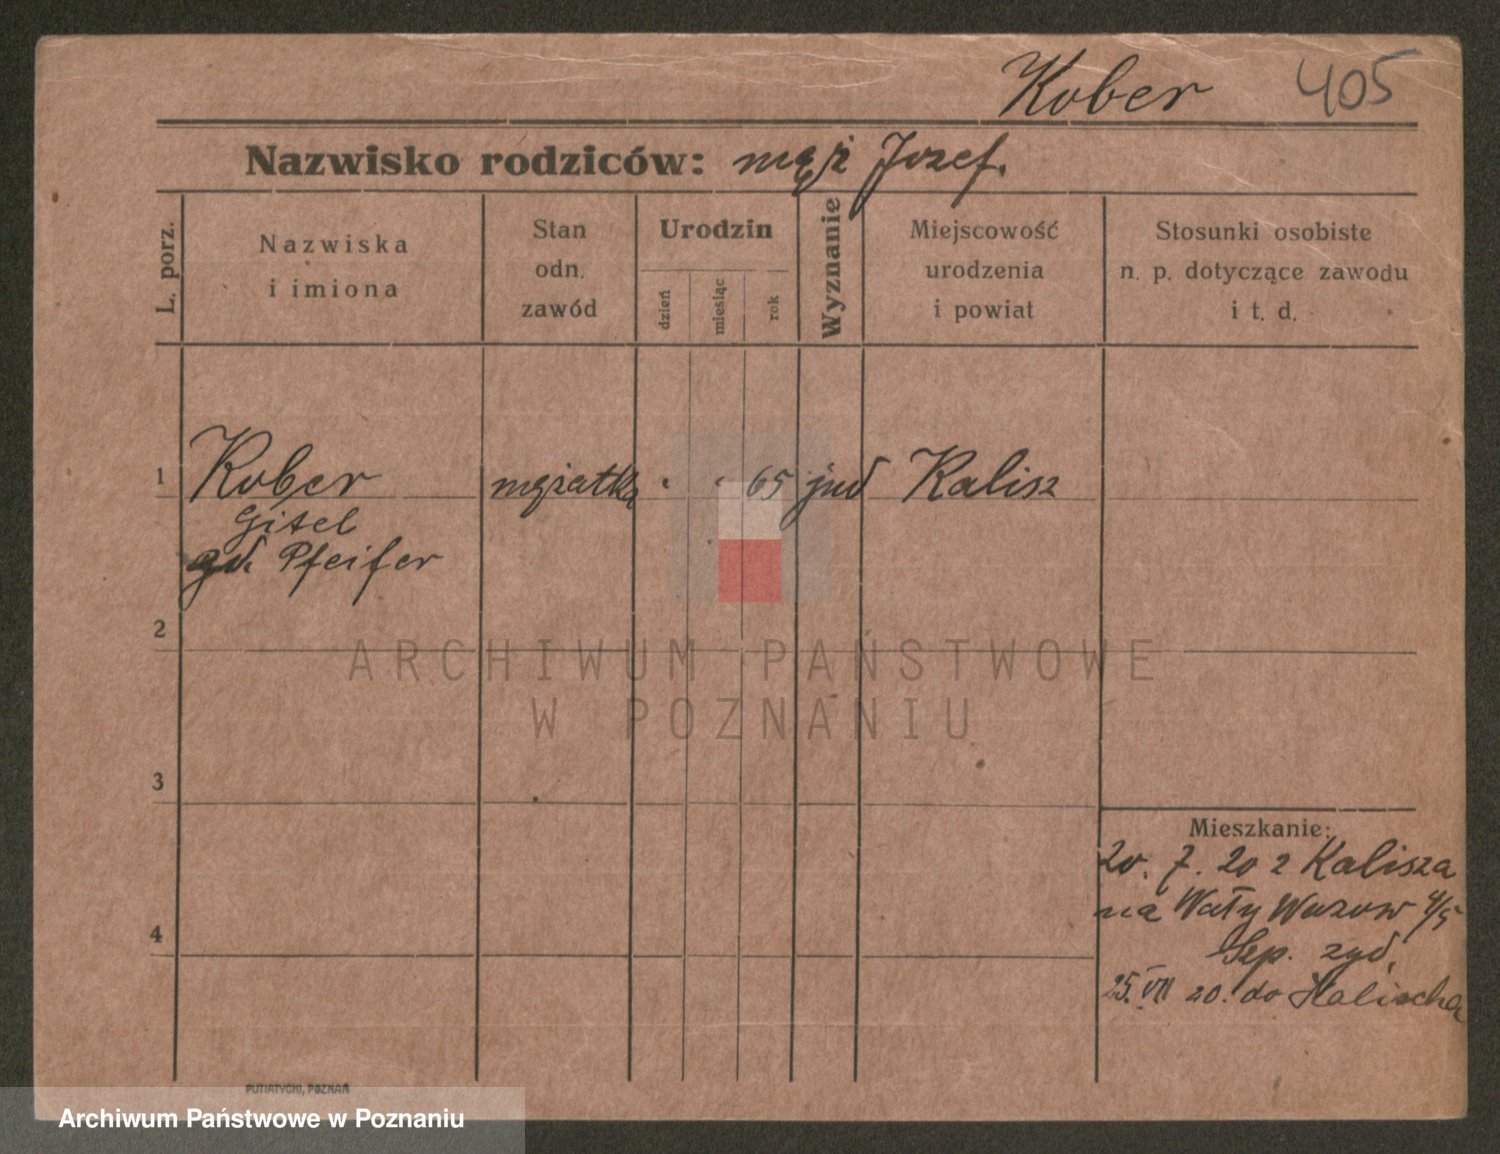 Kober 405
Nazwisko rodziców: mąż Jozef.
L. porz.
Nazwiska
i imiona
Stan
odn.
zawód
Urodzin
dzień
miesiąc
rok
Wyznanie
Miejscowość
urodzenia
i powiat
Stosunki osobiste
n. p. dotyczące zawodu
i t. d.
1 Kober mężatka 65 jud Kalisz
Gitel
gd. Pfeifer
2
ARCHIWUM PAŃSTWOWE
W POZNANIU
3
Mieszkanie:
20. 7. 20 z Kalisza
na Wały Wazow 4/5
żyd.
4
25. VII 20. do Kalischa
PUTIATYCKI, POZNAŃ
Archiwum Państwowe w Poznaniu